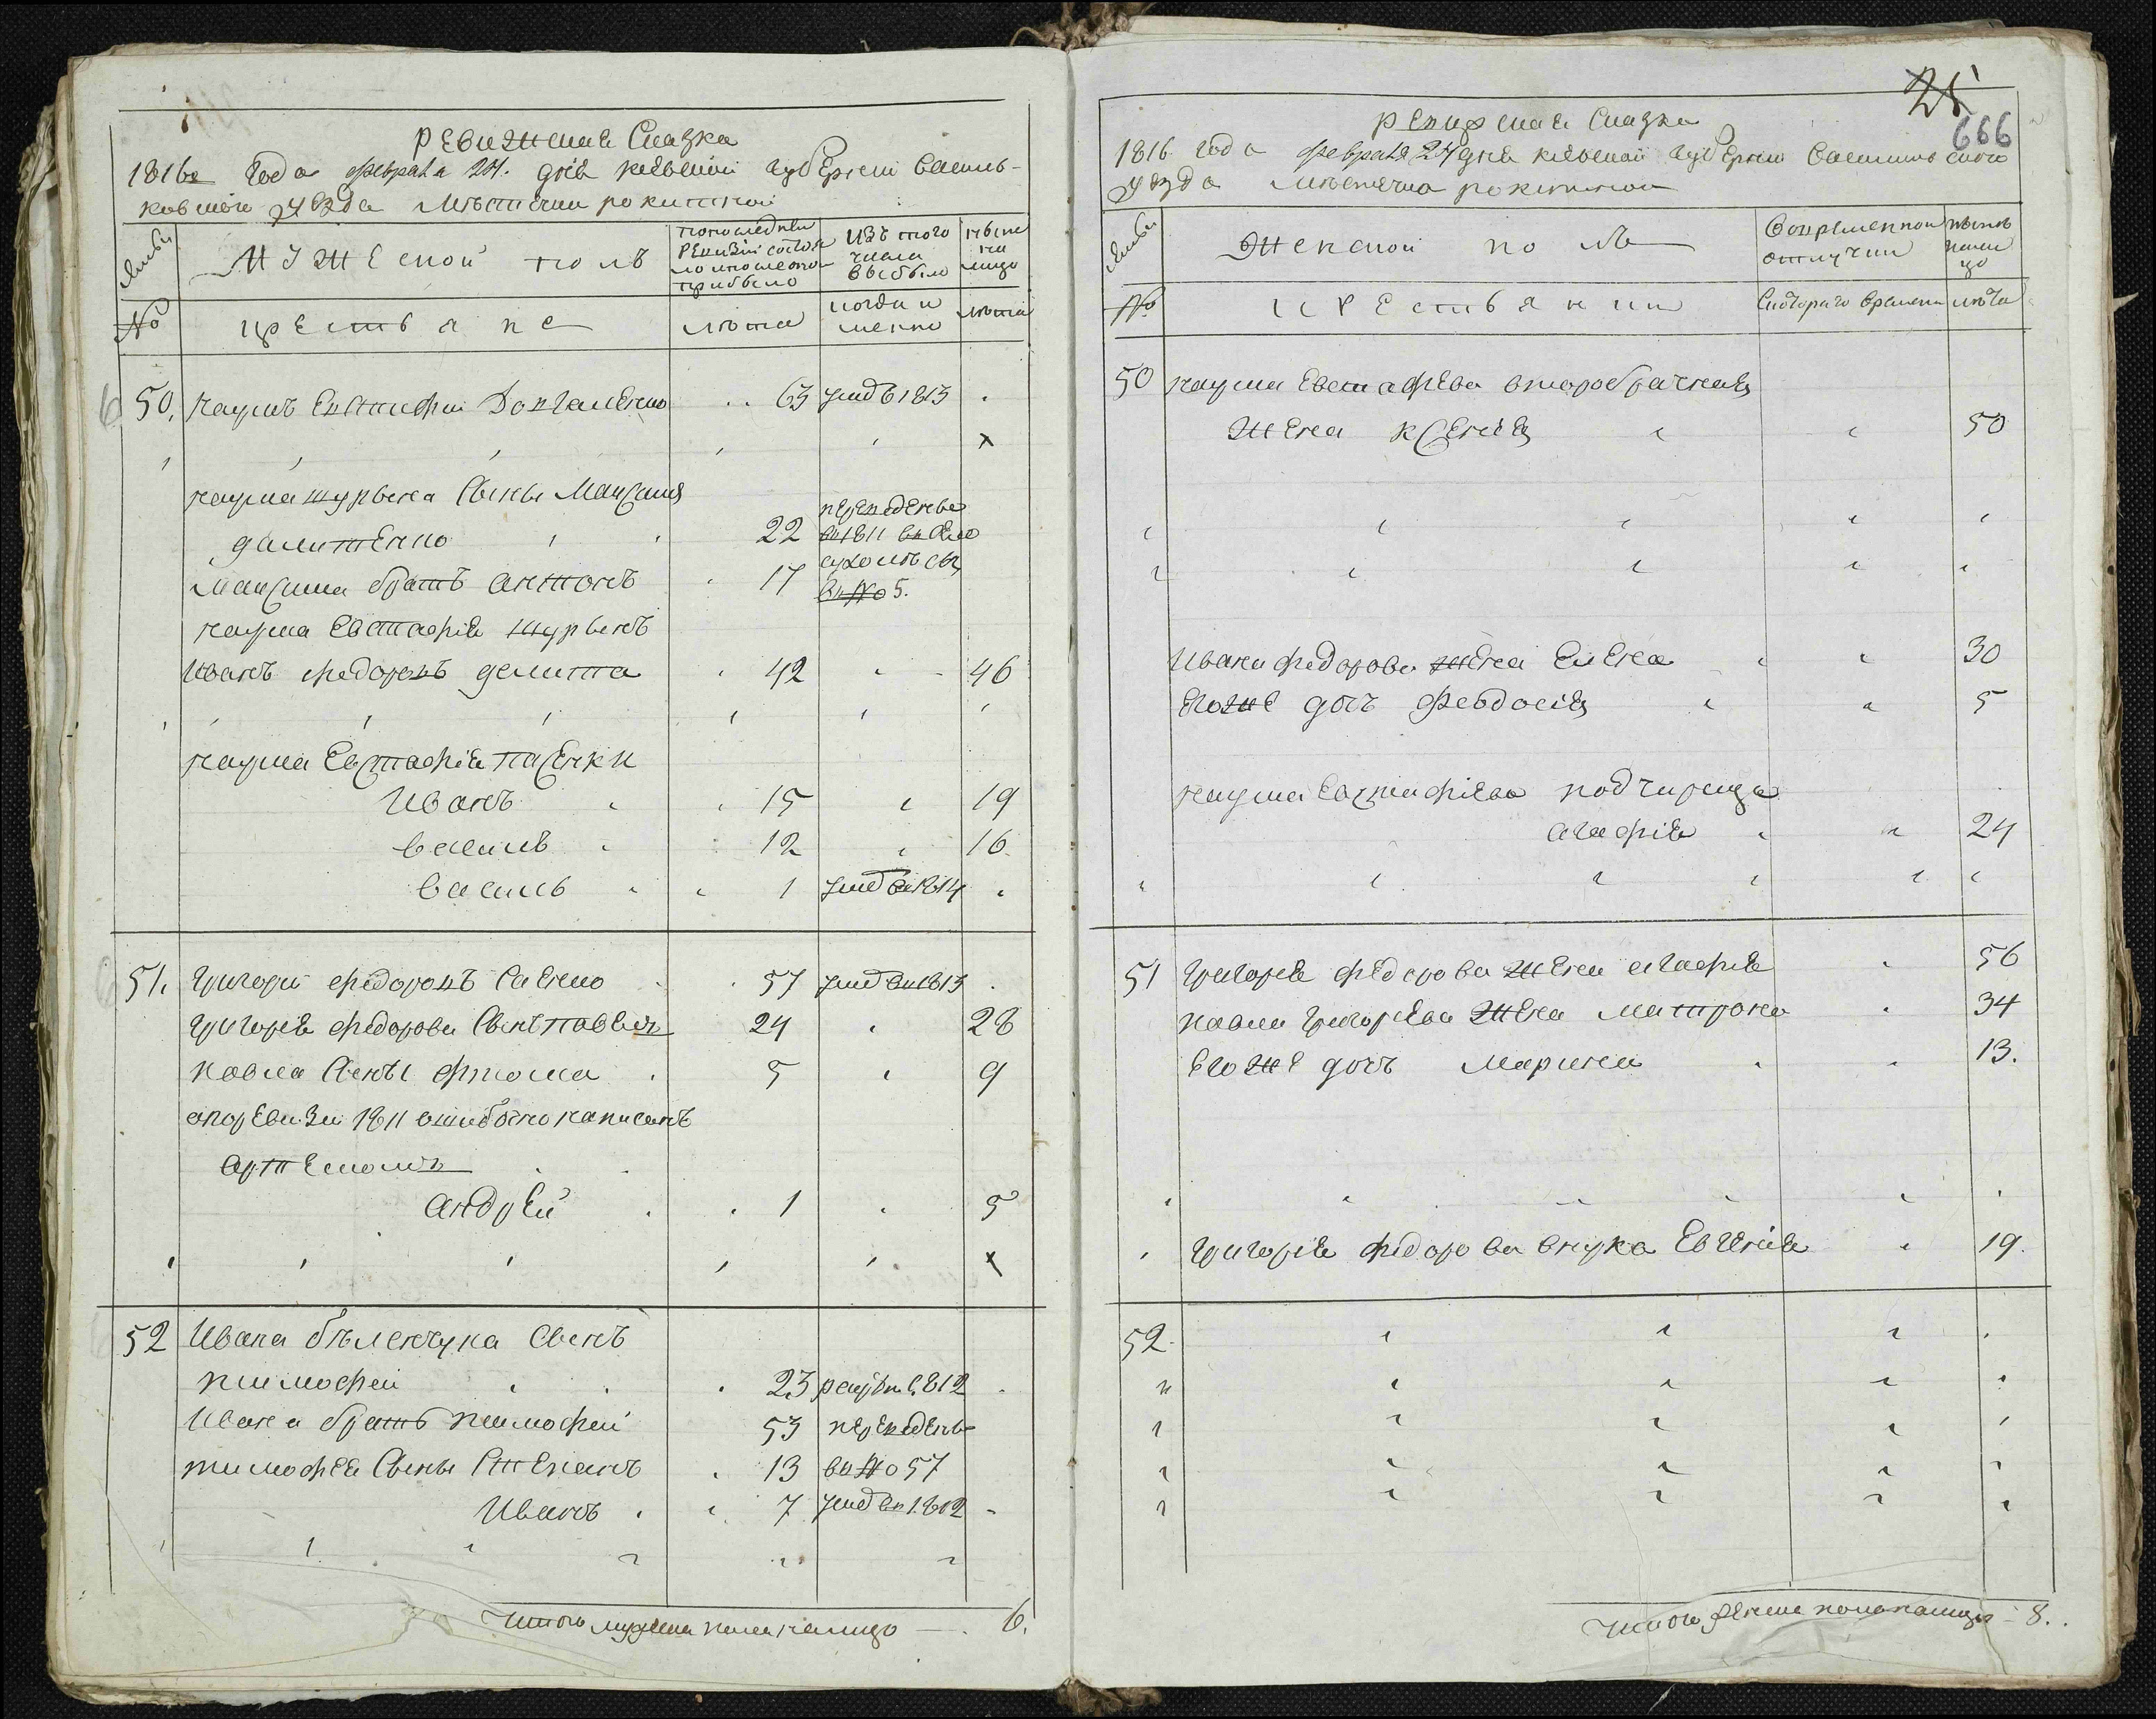 ревижская Сказка
1816го года февраля 24. дня киевской губернии василь-
ковского уезда местечки рокитной
Семьи
мужеской полъ
по последней ревизіи состояло и после оной прибыло
изъ того числа выбыло
ныне на лицо
№
крестьяне
лета
когда именно
лета
50. наумъ Евстафіи 63 умд 1813
х
наума шурьена Сыны Максима
22 переведены в 1811 в село
Максима братъ антонъ 17 в № 5.
наума Евстафія шурьенъ
Иванъ федоровъ демита 42 46
наума Евстафія пасенки
Иванъ 15 19
василь 12 16
василь 1 умд в 1814
51. григори федоровъ Саенко 57 умд в 1813
григорія федорова Сынъ павелъ 24 28
павла Сыны фтома 5 9
а по ревизи 1811 ошибочно написанъ
артемомъ
андрей 1 5
х
52 Ивана беленчука Сынъ
тимофей 23 рекрут в 1812
Ивана братъ тимофей 53 переведены
тимофея Сыны Степанъ 13 в № 57
Иванъ 7 умд в 1812
Итого мужеска пола налицо — 6.
25
666
ревижская Сказка
1816 года февраля 24 дня киевской губернии Василковского
уезда местечка рокитной
Семьи
Женской полъ
во временной отлучки
ныне на лицо
№
крестьянки
Сиоторого времени
лета
50 наума Евстафѣева второбрачная
жена ксенія 50
Ивана федорова жена Елена 30
Егоже дочъ феодосія 5
наума Евстафіева подчирица
агафія 24
51 григорія федорова жена агафія 56
павла григорьева жена матрона 34
Егоже дочъ марина 13.
григорія федорова внука Евгенія 19.
52.
Итого женска пола налицо - 8.